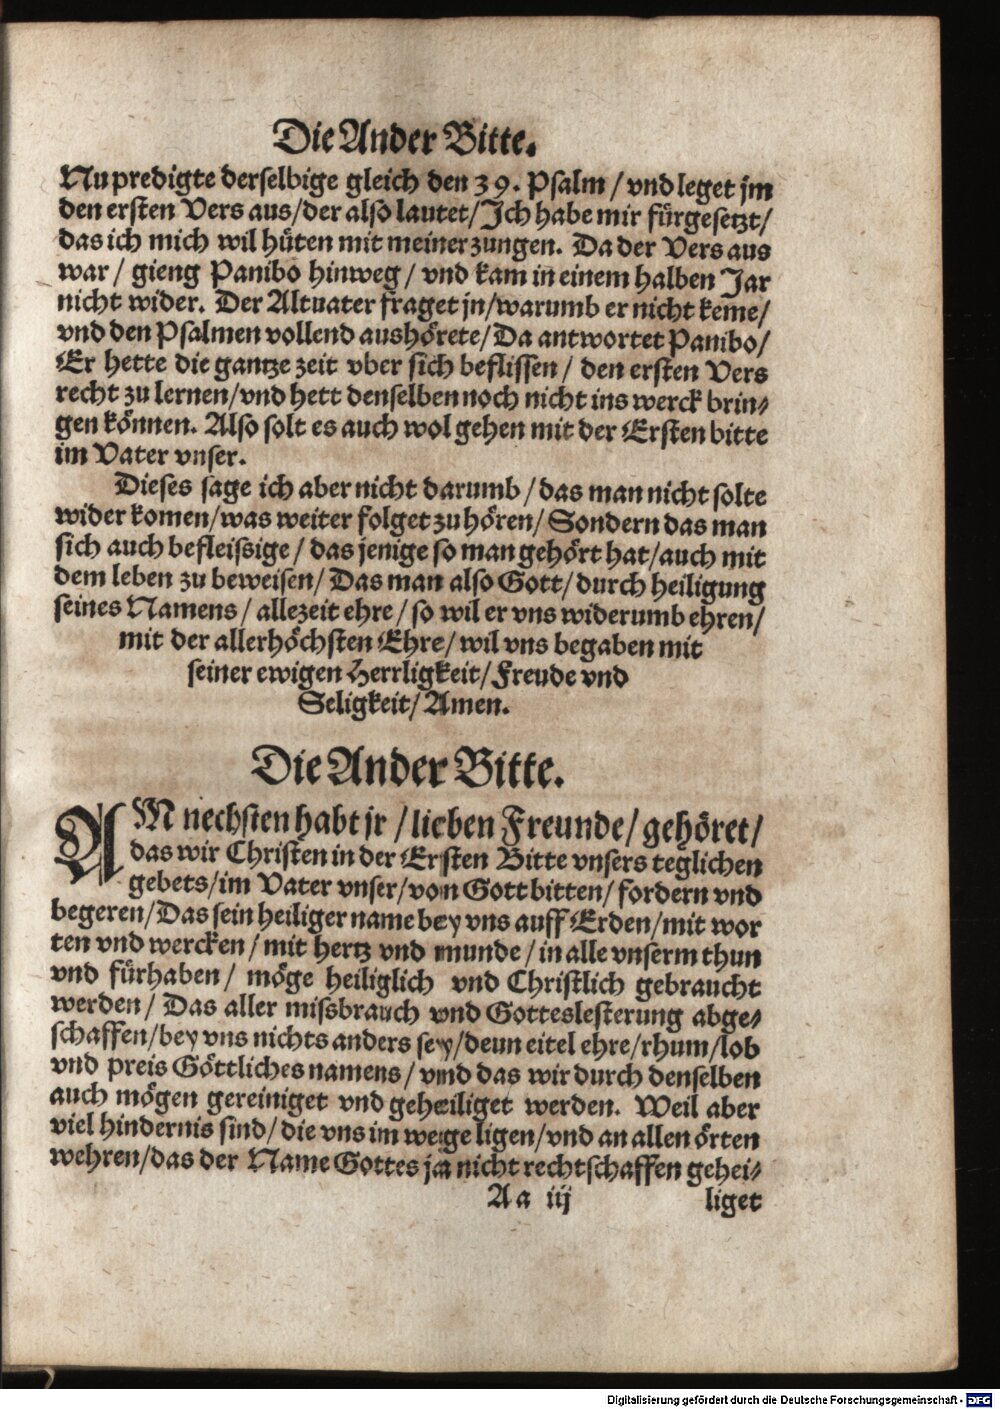 Die Ander Bitte.
Nu predigte derselbige gleich den 39. Psalm / vnd leget jm
den ersten Vers aus/der also lautet/Ich habe mir fürgesetzt/
das ich mich wil hüten mit meiner zungen. Da der Vers aus
war / gieng Panibo hinweg / vnd kam in einem halben Jar
nicht wider. Der Altuater fraget jn/warumb er nicht keme/
vnd den Psalmen vollend aushörete/Da antwortet Panibo/
Er hette die gantze zeit vber sich beflissen / den ersten Vers
recht zu lernen/vnd hett denselben noch nicht ins werck brin-
gen können. Also solt es auch wol gehen mit der Ersten bitte
im Vater vnser.
Dieses sage ich aber nicht darumb / das man nicht solte
wider komen/was weiter folget zu hören/ Sondern das man
sich auch befleissige / das jenige so man gehört hat/auch mit
dem leben zu beweisen/ Das man also Gott/ durch heiligung
seines Namens / allezeit ehre / so wil er vns widerumb ehren/
mit der allerhöchsten Ehre/ wil vns begaben mit
seiner ewigen Herrligkeit/ Freude vnd
Seligkeit/ Amen.
Die Ander Bitte.
AM nechsten habt jr / lieben Freunde/ gehöret/
das wir Christen in der Ersten Bitte vnsers teglichen
gebets/im Vater vnser/von Gott bitten/ fordern vnd
begeren/Das sein heiliger name bey vns auff Erden/mit wor
ten vnd wercken / mit hertz vnd munde / in alle vnserm thun
vnd fürhaben / möge heiliglich vnd Christlich gebraucht
werden / Das aller missbrauch vnd Gotteslesterung abge-
schaffen/bey vns nichts anders sey/denn eitel ehre/rhum/lob
vnd preis Göttliches namens / vnd das wir durch denselben
auch mögen gereiniget vnd geheiliget werden. Weil aber
viel hindernis sind/ die vns im wege ligen/vnd an allen örten
wehren/das der Name Gottes ja nicht rechtschaffen gehei-
Aa iij liget
Digitalisierung gefördert durch die Deutsche Forschungsgemeinschaft - DFG